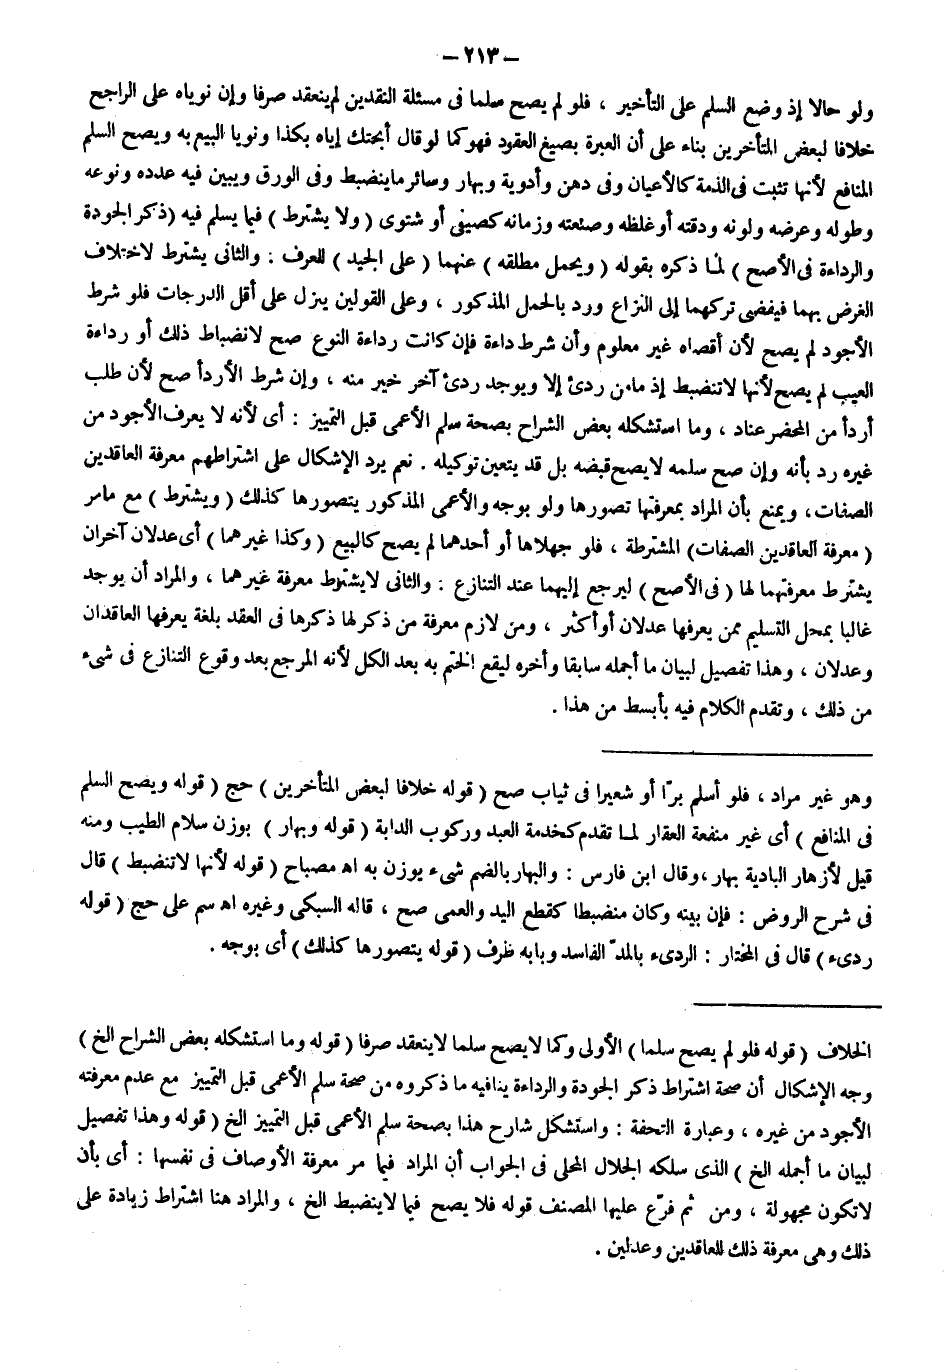 – ٢١٣ –
ولو حالا إذ وضع السلم على التأخير ، فلو لم يصح سلما فى مسئلة النقدين لم ينعقد صرفا وإن نوياه على الراجح
خلافا لبعض المتأخرين بناء على أن العبرة بصيغ العقود فهو كما لو قال أبحتك إياه بكذا ونويا البيع به ويصح السلم
المنافع لأنها تثبت فى الذمة كالأعيان وفى دهن وأدوية وبهار وسائر ماينضبط وفى الورق ويبين فيه عدده ونوعه
وطوله وعرضه ولونه ودقته أو غلظه وصنعته وزمانه كصيفى أو شتوى ( ولا يشترط ) فيما يسلم فيه (ذكر الجودة
والرداءة فى الأصح ) لما ذكره بقوله ( ويحمل مطلقه ) عنهما ( على الجيد ) للعرف : والثانى يشترط لاختلاف
الغرض بهما فيفضى تركهما إلى النزاع ورد بالحمل المذكور ، وعلى القولين ينزل على أقل الدرجات فلو شرط
الأجود لم يصح لأن أقصاه غير معلوم وأن شرط داءة فإن كانت رداءة النوع صح لانضباط ذلك أو رداءة
العيب لم يصح لأنها لاتنضبط إذ مامن ردئ إلا ويوجد ردئ آخر خير منه ، وإن شرط الأردأ صح لأن طلب
أردأ من المحضر عناد ، وما استشكله بعض الشراح بصحة سلم الأعمى قبل التمييز : أى لأنه لا يعرف الأجود من
غيره رد بأنه وإن صح سلمه لايصح قبضه بل قد يتعين توكيله . نعم يرد الإشكال على اشتراطهم معرفة العاقدين
الصفات ، ويمنع بأن المراد بمعرفتها تصورها ولو بوجه والأعمى المذكور يتصورها كذلك ( ويشترط ) مع مامر
( معرفة العاقدين الصفات) المشترطة ، فلو جهلاها أو أحدهما لم يصح كالبيع ( وكذا غيرهما ) أى عدلان آخران
يشترط معرفتهما لها ( فى الأصح ) ليرجع إليهما عند التنازع : والثانى لايشترط معرفة غيرهما ، والمراد أن يوجد
غالبا بمحل التسليم ممن يعرفها عدلان أو أكثر ، ومن لازم معرفة من ذكر لها ذكرها فى العقد بلغة يعرفها العاقدان
وعدلان ، وهذا تفصيل لبيان ما أجمله سابقا وأخره ليقع الختم به بعد الكل لأنه المرجع بعد وقوع التنازع فى شىء
من ذلك ، وتقدم الكلام فيه بأبسط من هذا .
وهو غير مراد ، فلو أسلم برّا أو شعيرا فى ثياب صح ( قوله خلافا لبعض المتأخرين ) حج ( قوله ويصح السلم
فى المنافع ) أى غير منفعة العقار لما تقدم كخدمة العبد وركوب الدابة ( قوله وبهار ) بوزن سلام الطيب ومنه
قيل لأزهار البادية بهار ، وقال ابن فارس : والبهار بالضم شىء يوزن به اه مصباح ( قوله لأنها لاتنضبط ) قال
فى شرح الروض : فإن بينه وكان منضبطا كقطع اليد والعمى صح ، قاله السبكى وغيره اه سم على حج ( قوله
ردىء ) قال فى المختار : الردىء بالمدّ الفاسد وبابه ظرف ( قوله يتصورها كذلك ) أى بوجه .
الخلاف ( قوله فلو لم يصح سلما ) الأولى وكما لايصح سلما لاينعقد صرفا ( قوله وما استشكله بعض الشراح الخ )
وجه الإشكال أن صحة اشتراط ذكر الجودة والرداءة ينافيه ما ذكروه من صحة سلم الأعمى قبل التمييز مع عدم معرفته
الأجود من غيره ، وعبارة التحفة : واستشكل شارح هذا بصحة سلم الأعمى قبل التمييز الخ ( قوله وهذا تفصيل
لبيان ما أجمله الخ ) الذى سلكه الجلال المحلى فى الجواب أن المراد فيما مر معرفة الأوصاف فى نفسها : أى بأن
لاتكون مجهولة ، ومن ثم فرّع عليها المصنف قوله فلا يصح فيما لاينضبط الخ ، والمراد هنا اشتراط زيادة على
ذلك وهى معرفة ذلك للعاقدين وعدلين .